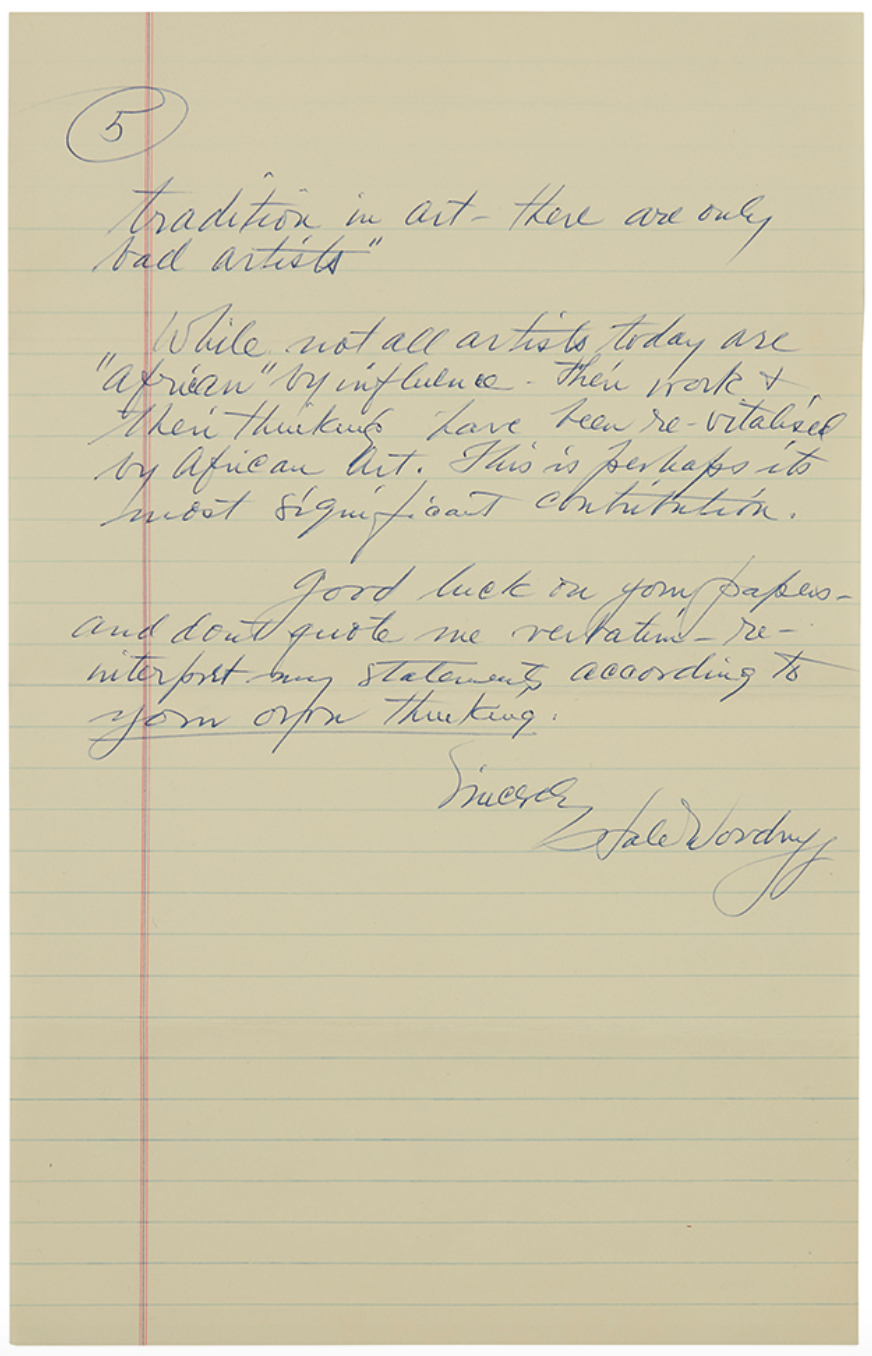 5
tradition in art - there are only
bad artists"
While not all artists today are
"African" by influence - their work +
their thinking have been re-vitalised
by African Art. This is perhaps its
most significant contribution.
Good luck on your papers -
and dont quote me verbatim - re-
interpret my statements according to
your own thinking.
Sincerely
Hale Woodruff